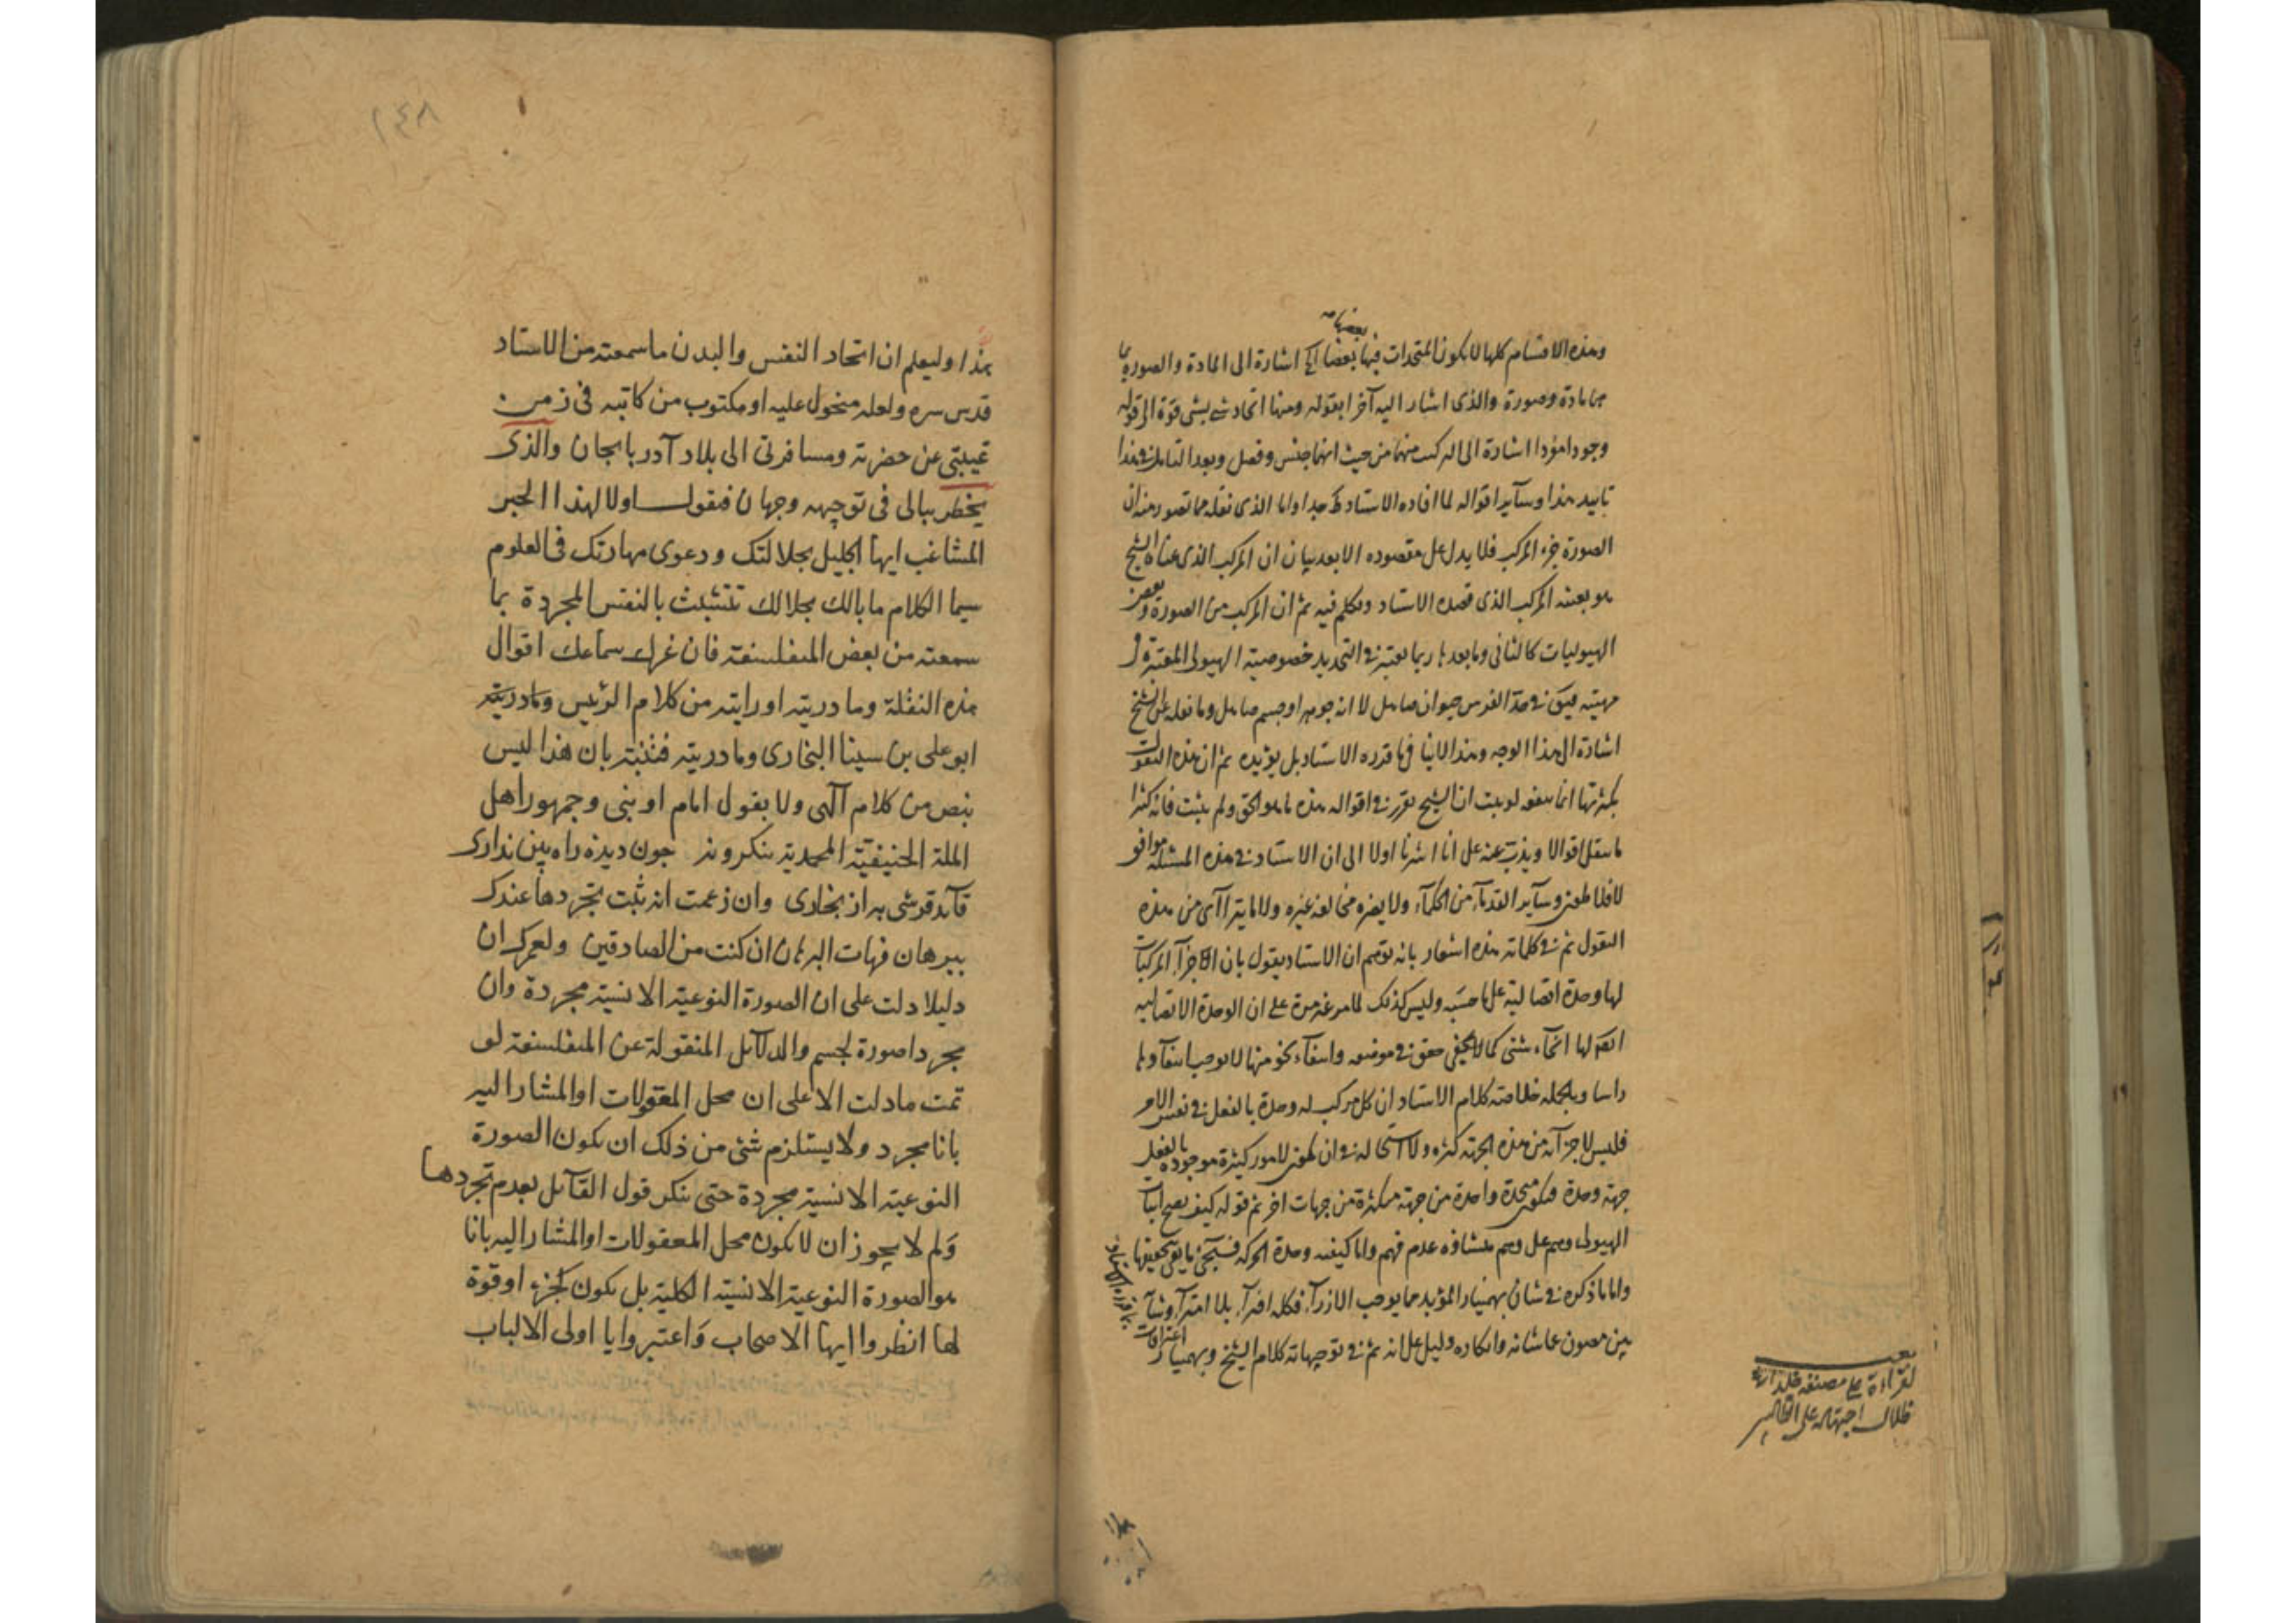 وهذه الاقسام كلها لا يكون المتحدات فيها بعضها اشارة الى المادة والصورة بما
من مادة وصورة والذى اشار اليه آخرا بقوله ومنها اتحاد شى بشى قوة الى قوله
وجودا اشارة الى المركب منهما من حيث انهما جنس وفصل وبعد التأمل فى هذا
تأييد هذا وسآير اقواله لما افاده الاستاد جدا واما الذى نقله مما تصور منه ان
الصورة جزء المركب فلا يدل على مقصوده الا بعد بيان ان المركب الذى عناه الشيخ
هو بعينه المركب الذى قصده الاستاد وتكلم فيه ثم ان المركب من الصورة وبعض
الهيوليات كالثانى وما بعدها ربما يعتبر فى التحديد خصوصية الهيولى المعتبرة فى
مهيته فيق فى حد الفرس حيوان صاهل لا انه جوهر او جسم صاهل وما نقله عن الشيخ
اشارة الى هذا الوجه وهذا لا ينافى ما قرره الاستاد بل يؤيده ثم ان هذه النقول
بكثرتها انما ينفعه لو يثبت ان الشيخ يقرر فى اقواله هذه ما هو الحق ولم يثبت فانه كثيرا
ما ينقل اقوالا ويذب عنه على انا اشرنا اولا الى ان الاستاد فى هذه المسئلة موافق
لافلاطون وسآير القدمآء من الحكمآء ولا يضره مخالفة غيره ولا ما يترآى من هذه
النقول ثم فى كلماته هذه اشعار بانه توهم ان الاستاد يقول بان لاجزآء المركبات
لها وحدة اتصالية على ما حسبه وليس كذلك لما مر غير مرة على ان الوحدة الاتصالية
لها انحآء شتى كما لا يخفى حقق فى موضعه وانتفآء نحو منها لا يوجب انتفآءها
راسا وبالجملة خلاصة كلام الاستاد ان كل مركب له وحدة بالفعل فى نفس الامر
فليس لاجزآئه من هذه الجهة كثرة ولا استحالة فى ان يكون لامور كثيرة موجودة بالفعل
جهة وحدة فيكون متحدة واحدة من جهة متكثرة من جهات اخر ثم قوله كيف يصح اثبات
الهيولى وهم على وهم منشاؤه عدم فهم واما كيفية وحدة الحركة فسيجئ ما يفى بتحقيقها
واما ما ذكره فى شان بهمنيار المؤيد مما يوجب الازرآء فكله افترآء بلا امترآء وشآن
بين مصون عما شانه وانكاره دليل على انه ثم فى توجيهاته كلام الشيخ وبهمنيار اعترافات
بما قرره الاستاد
لقراءة على مصنفه
ظلال اجتهاده على
١٤٨
هذا وليعلم ان اتحاد النفس والبدن ما سمعته من الاستاد
قدس سره ولعله منحول عليه او مكتوب من كاتبه فى زمن
غيبتى عن حضرته ومسافرتى الى بلاد آدربايجان والذى
يخطر ببالى فى توجيهه وجهان فنقول اولا لهذا الحبر
المشاغب ايها الجليل بجلالتك ودعوى مهارتك فى العلوم
سيما الكلام ما بالك بجلالك تتشبث بالنفس المجردة بما
سمعته من بعض المتفلسفة فان غرك سماعك اقوال
هذه النقلة وما دريته او رايته من كلام الرئيس وما دريته
ابو على بن سينا البخارى وما دريته فنتبه بان هذا ليس
بنص من كلام آلهى ولا بقول امام او نبى وجمهور اهل
الملة الحنيفية المحمدية منكروند جون ديده راه بين ندارى
قآيد قرشى به از بخارى وان زعمت انه ثبت تجردها عندك
ببرهان فهات البرهان ان كنت من الصادقين ولعمرك ان
دليلا دلت على ان الصورة النوعية الانسية مجردة وان
مجردا صورة لجسم والدلآيل المنقولة عن المتفلسفة لو
تمت ما دلت الا على ان محل المعقولات او المشار اليه
بانا مجرد ولا يستلزم شئ من ذلك ان يكون الصورة
النوعية الانسية مجردة حتى ينكر قول القآيل بعدم تجردها
ولم لا يجوز ان لا يكون محل المعقولات او المشار اليه بانا
هو الصورة النوعية الانسية الكلية بل يكون كجزء او قوة
لها انظروا ايها الاصحاب واعتبروا يا اولى الالباب